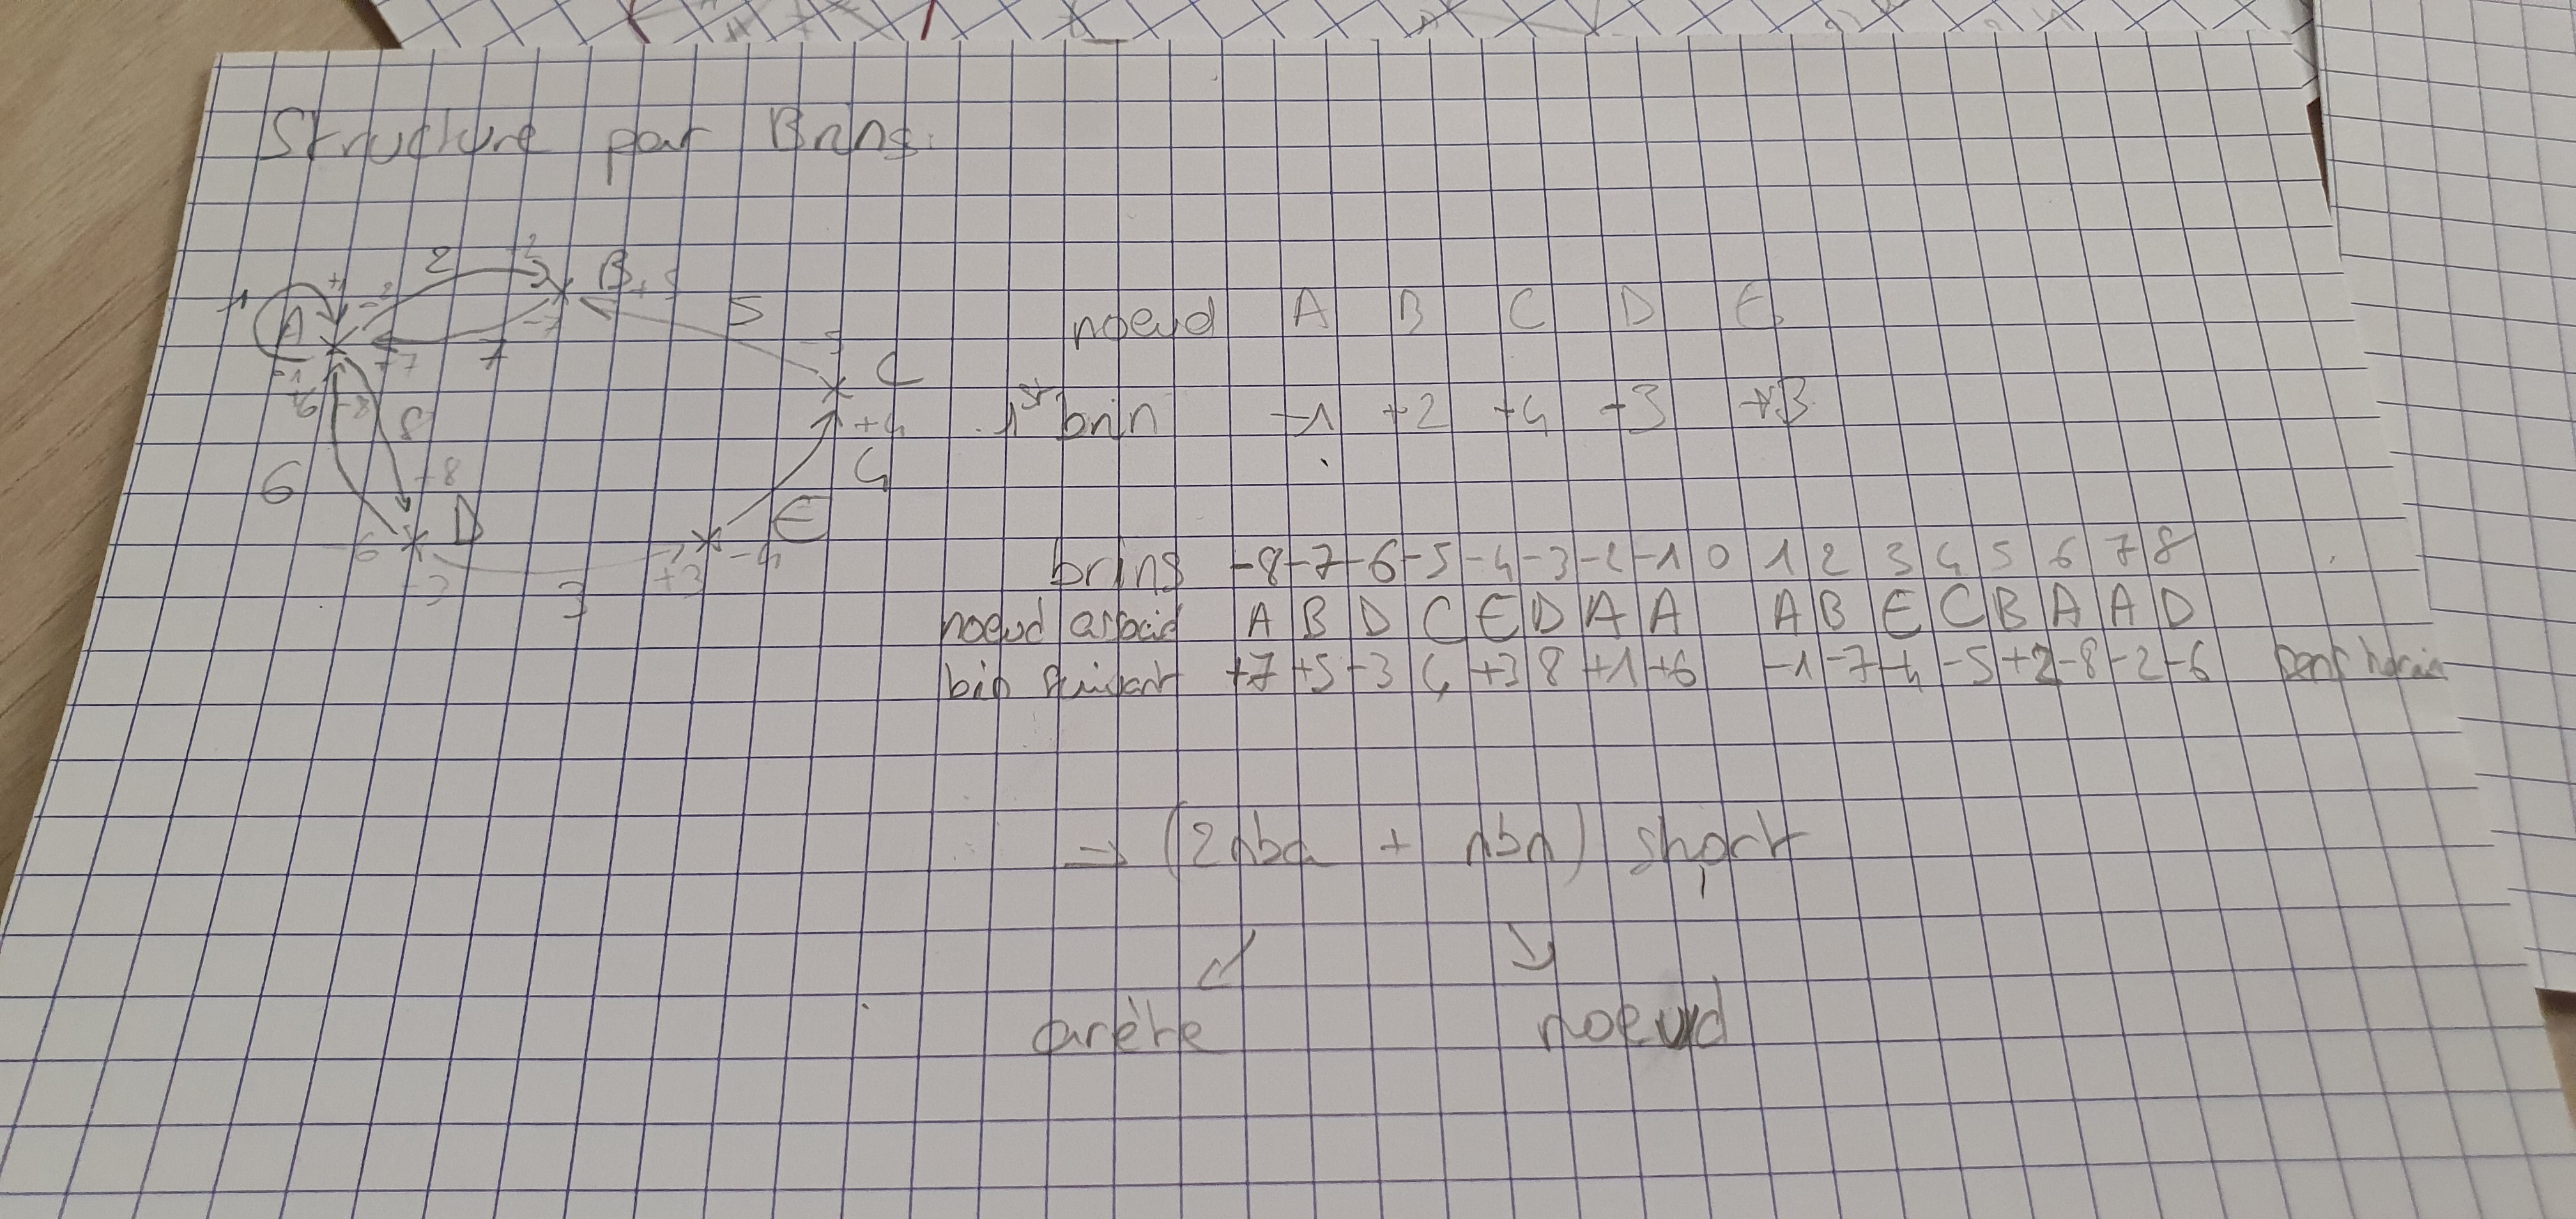 Structure par Brins:
1 A +1 -1 -2 2 +2 B +5 -7 7 +7 5 -5 C
+6 -8 8 +4 4
6 +8 -6 D -3 3 +3 E -4
noeud A B C D E
1st brin -1 +2 +4 -3 +3
brins -8 -7 -6 -5 -4 -3 -2 -1 0 1 2 3 4 5 6 7 8
noeud associé A B D C E D A A A B E C B A A D
brin suivant +7 +5 -3 4 +3 8 +1 +6 -1 -7 -4 -5 +2 -8 -2 -6 sens horaire
→ (2nba + nbn) short
arète noeud